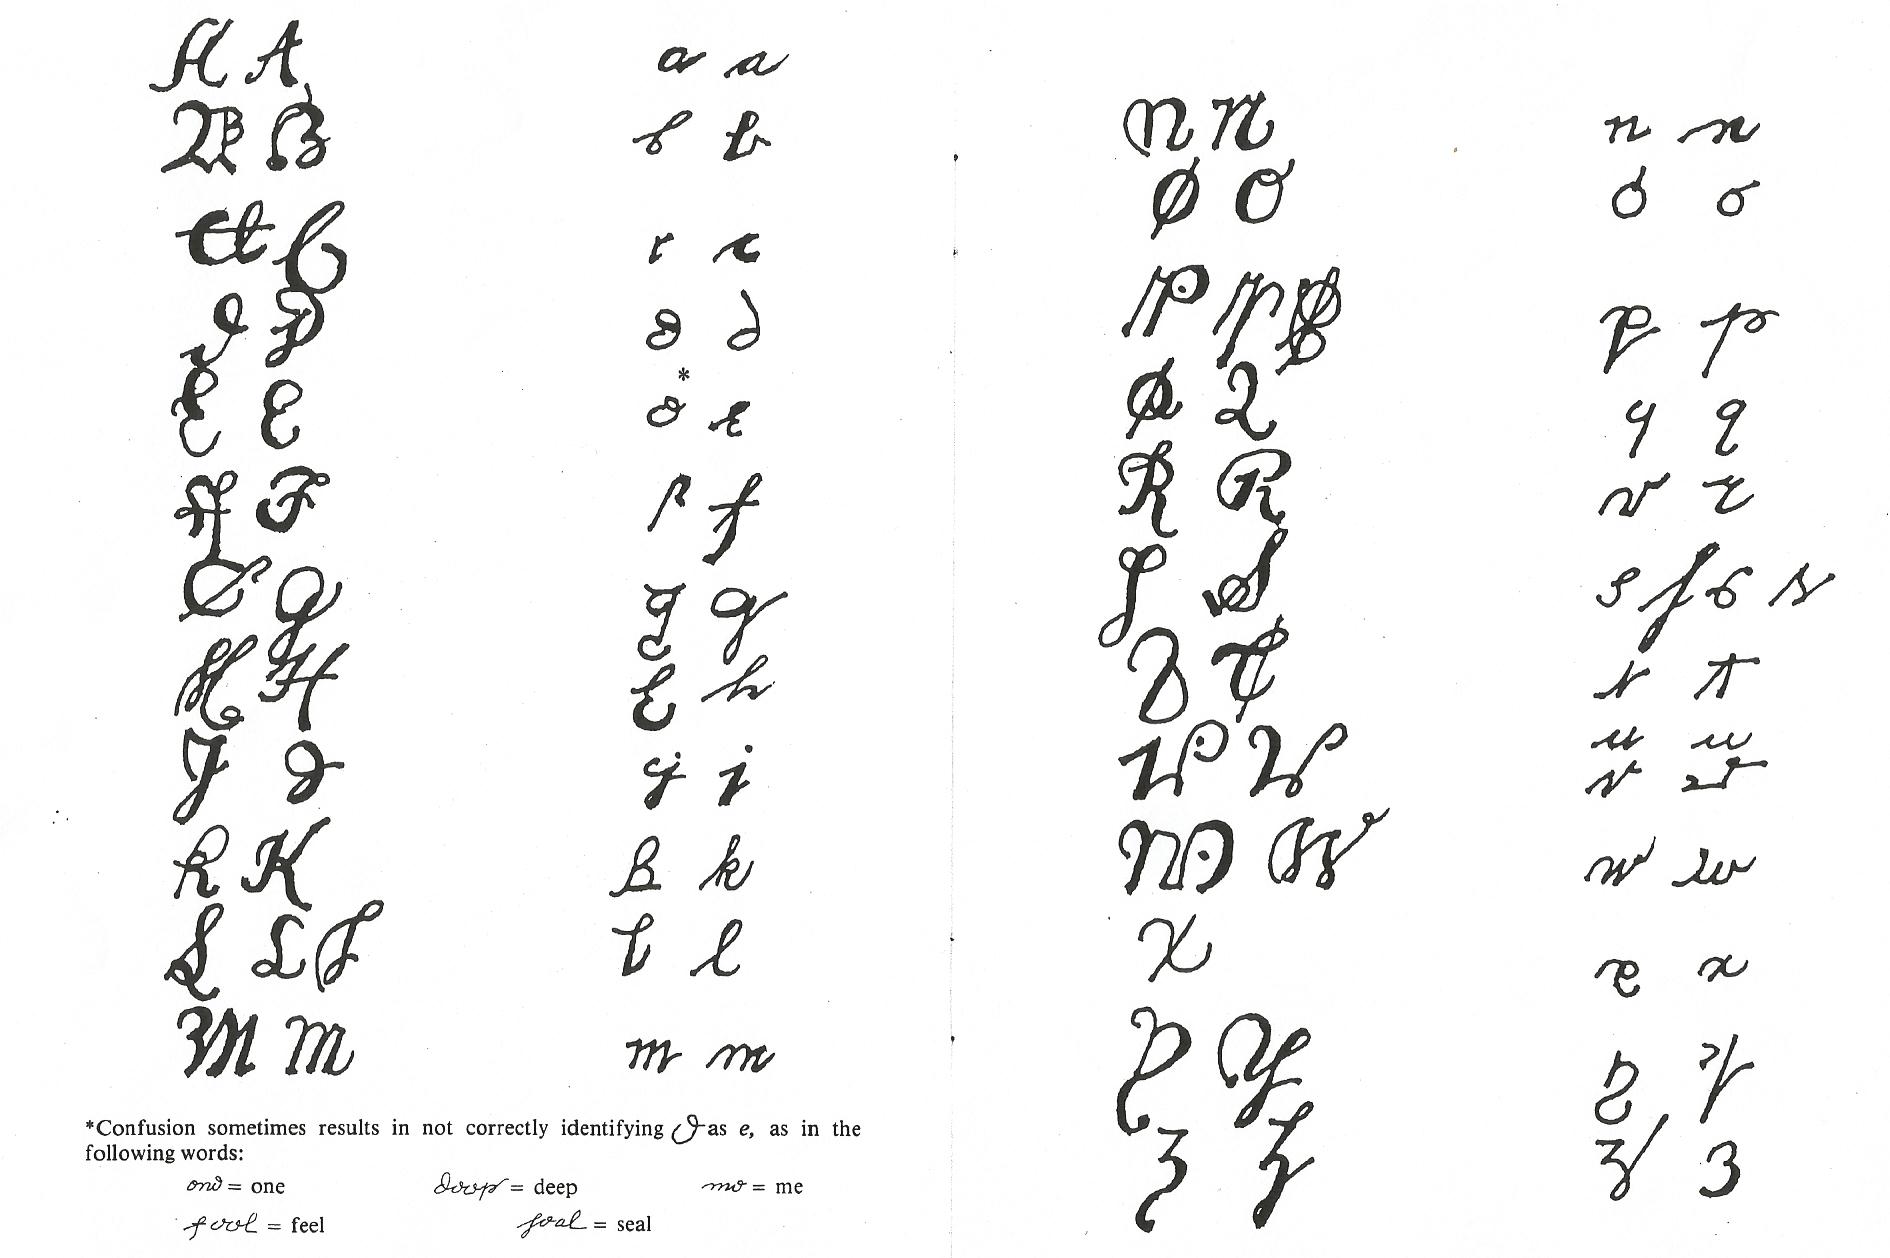 A A a a
B B b b
C C c c
D D d d
*
E E e e
F F f f
G G g g
H H h h
J J j j
K K k k
L L L l l
M M m m
*Confusion sometimes results in not correctly identifying e as e, as in the
following words:
one = one deep = deep me = me
feel = feel seal = seal
N N n n
O O o o
P P P p p
Q Q q q
R R r r
S S s s s s
T T t t
u u
V V v v
W W w w
X x x
Y Y y y
Z Z z z